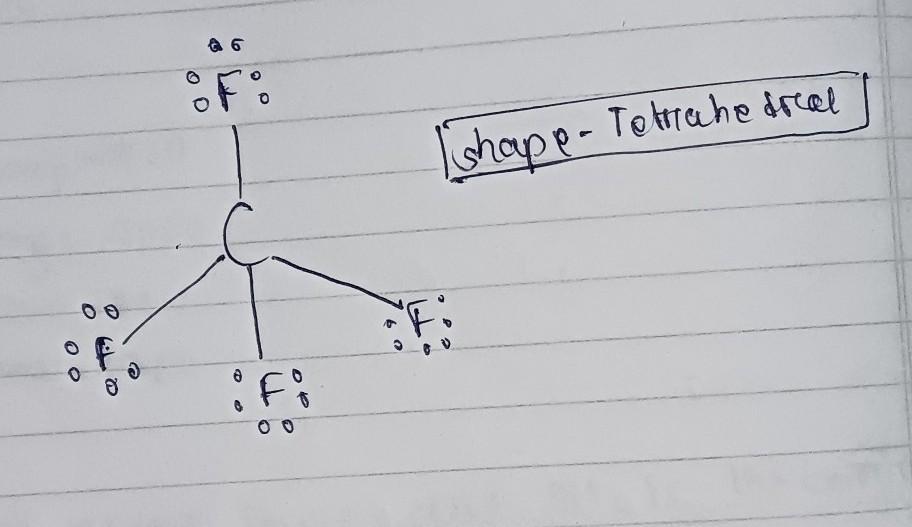 F
shape - Tetrahedral
C
F
F
F